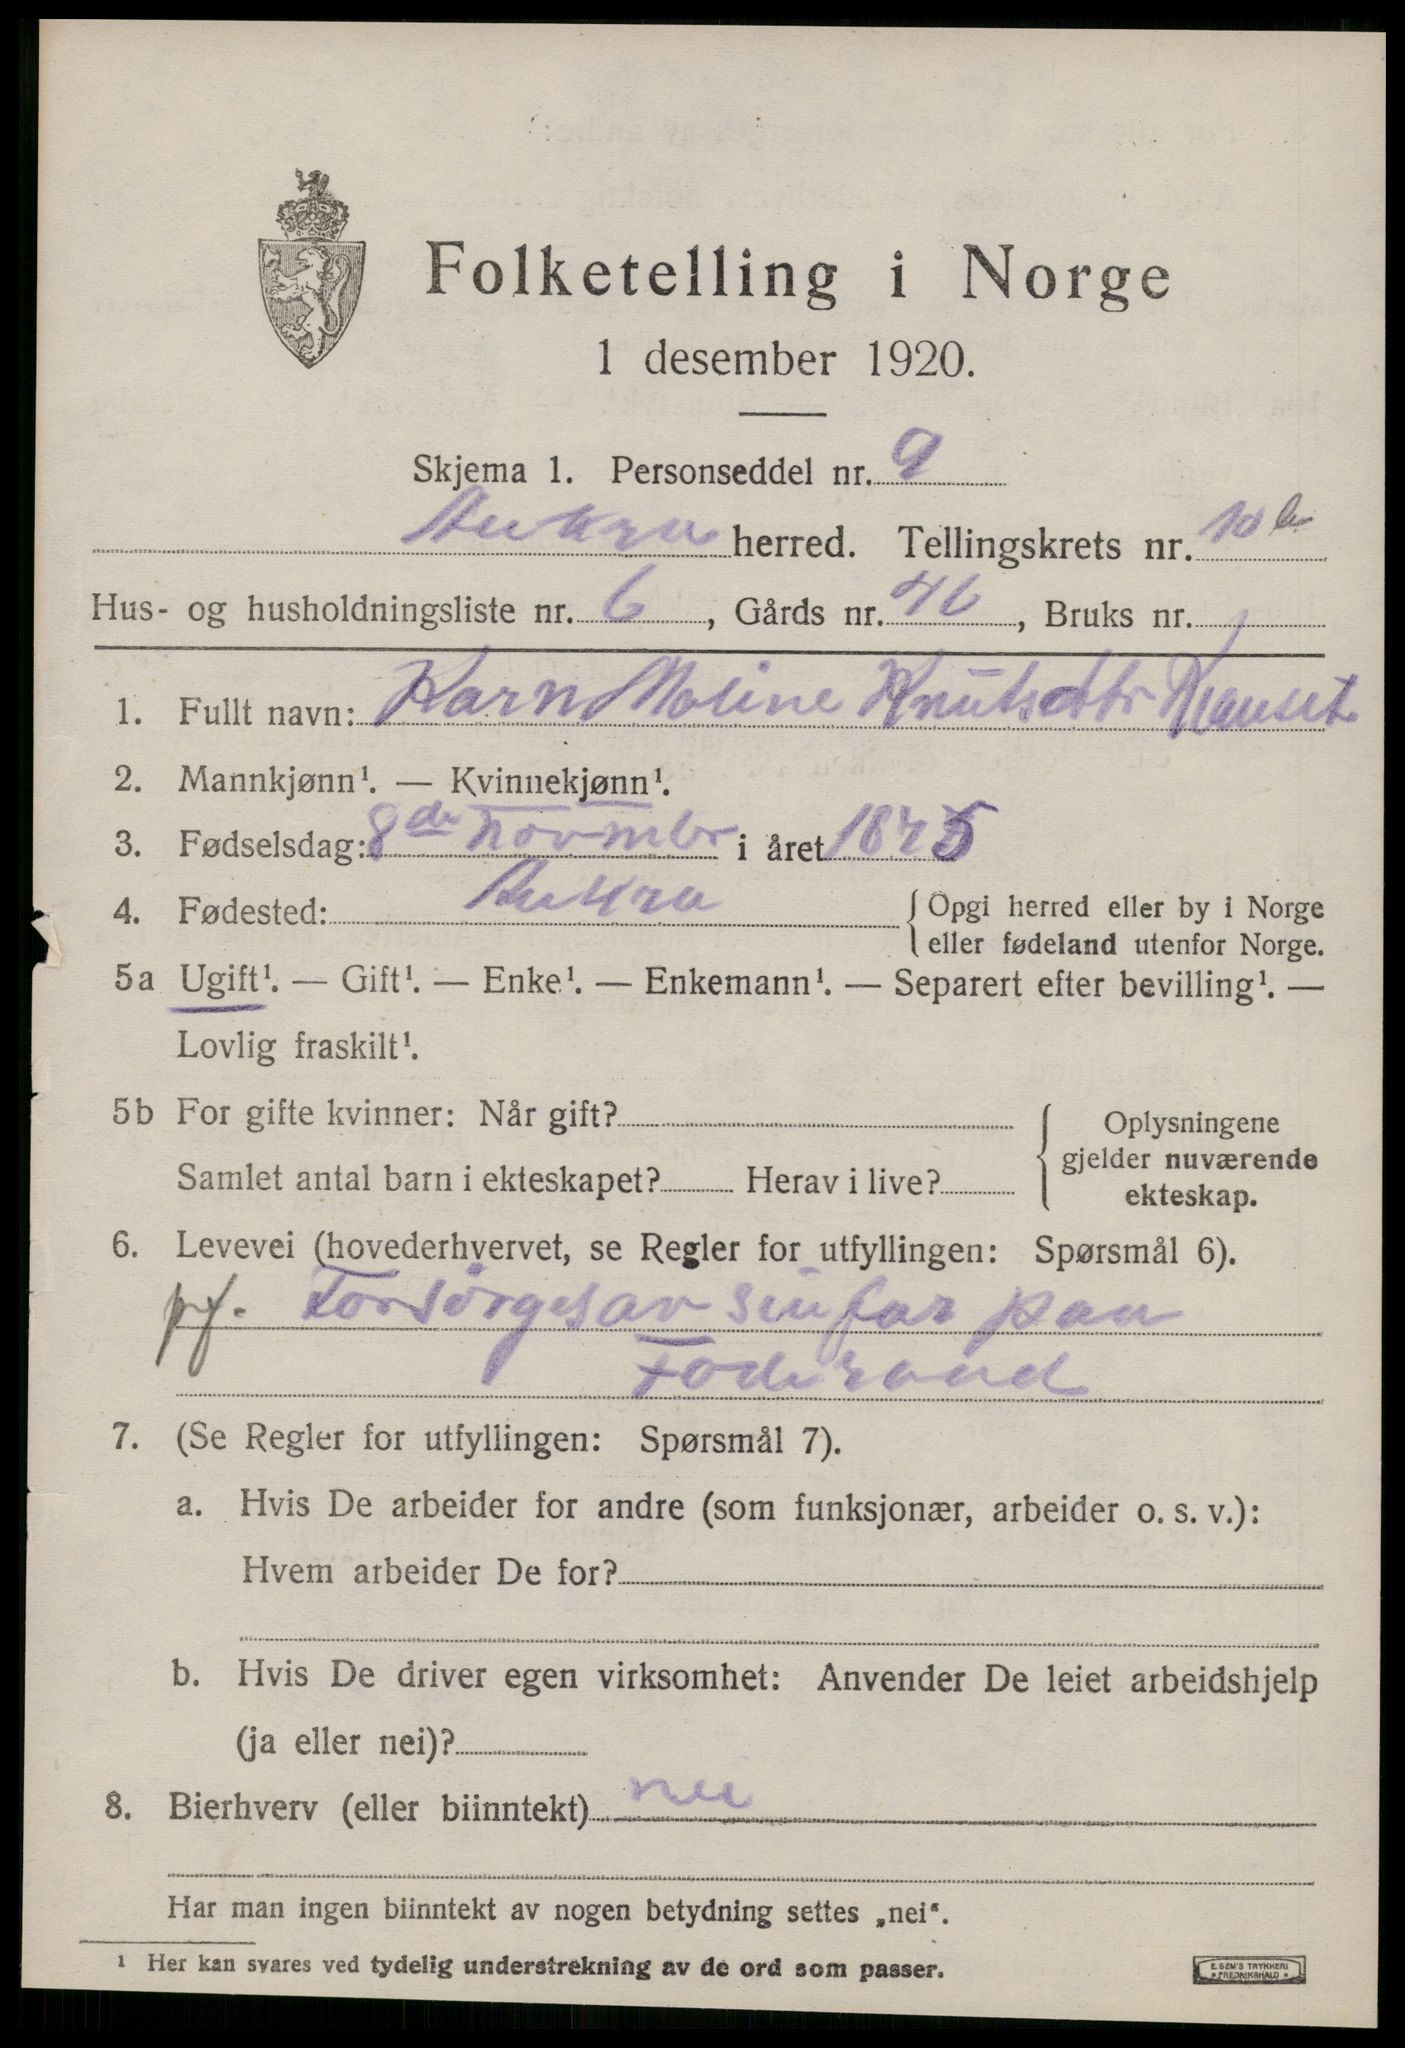 Folketelling i Norge
1 desember 1920.
Skjema 1. Personseddel nr. 9
Aukra herred. Tellingskrets nr. 10 b
Hus- og husholdningsliste nr. 6, Gårds nr. 46, Bruks nr. 1
1. Fullt navn: Karn Moline Knutsdtr
2. Mannkjønn¹. — Kvinnekjønn¹.
3. Fødselsdag: 8de novmbr i året 1875
4. Fødested: Aukra { Opgi herred eller by i Norge
eller fødeland utenfor Norge.
5a Ugift¹. — Gift¹. — Enke¹. — Enkemann¹. — Separert efter bevilling¹. —
Lovlig fraskilt¹.
5b For gifte kvinner: Når gift? { Oplysningene
gjelder nuværende
Samlet antal barn i ekteskapet? Herav i live? ekteskap.
6. Levevei (hovederhvervet, se Regler for utfyllingen: Spørsmål 6).
pf. Forsørges av sin far paa
Føderaad
7. (Se Regler for utfyllingen: Spørsmål 7).
a. Hvis De arbeider for andre (som funksjonær, arbeider o. s. v.):
Hvem arbeider De for?
b. Hvis De driver egen virksomhet: Anvender De leiet arbeidshjelp
(ja eller nei)?
8. Bierhverv (eller biinntekt) nei
Har man ingen biinntekt av nogen betydning settes „nei“.
¹ Her kan svares ved tydelig understrekning av de ord som passer.
E. SEM'S TRYKKERI
* FREDRIKSHALD *